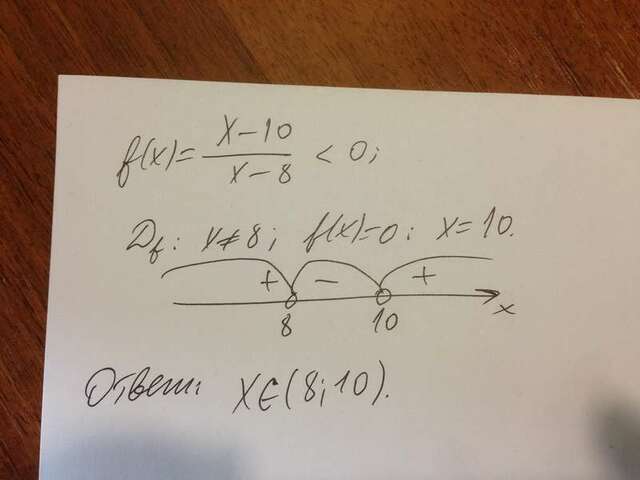 f(x)= x-10 / x-8 < 0;
Df: x≠8; f(x)=0: x=10.
+ - +
8 10 x
Ответ: x∈(8;10).